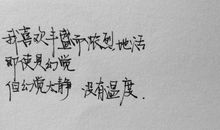 我喜欢丰盛而浓烈地活
即使是幻觉
但幻觉太静 没有温度.